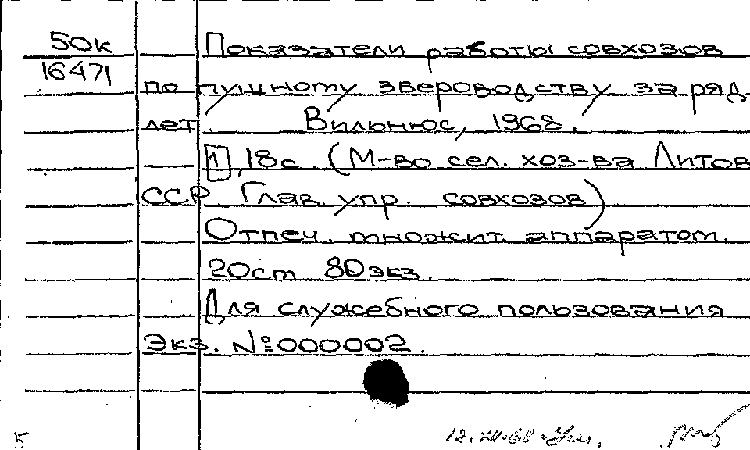 50к Показатели работы совхозов
16471 по пушному звероводству за ряд
лет. Вильнюс, 1968.
[1], 18с. (М-во сел. хоз-ва Литов
ССР. Глав. упр. совхозов)
Отпеч. множит. аппаратом.
20см 80экз.
Для служебного пользования
Экз. №000002.
5